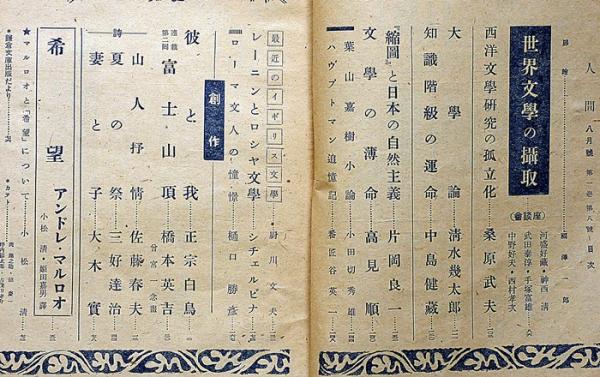 人間 八月號 第一巻 第八號 目次
世界文學の攝取
(座談會)
河盛好藏・神西清
武田泰淳・手塚富雄
中野好夫・西村孝次
西洋文學硏究の孤立化 桑原武夫
大學論 清水幾太郎
知識階級の運命 中島健藏
『縮圖』と日本の自然主義 片岡良一
文學の薄命 高見順
葉山嘉樹小論 小田切秀雄
ハウプトマン追憶記 番匠谷英一
最近のイギリス文學 厨川文夫
レーニンとロシヤ文學 シチェルビナ
ローマ文人の憧憬 樋口勝彦
創作
彼と我 正宗白鳥
連載第二回 富士山頂 橋本英吉
山人抒情 佐藤春夫
詩 夏の祭 三好達治
妻と子 大木實
希望 アンドレ・マルロオ
小松清・嶺田嘉男譯
★マルロオと「希望」について 小松清
★鎌倉文庫出版だより
★カット